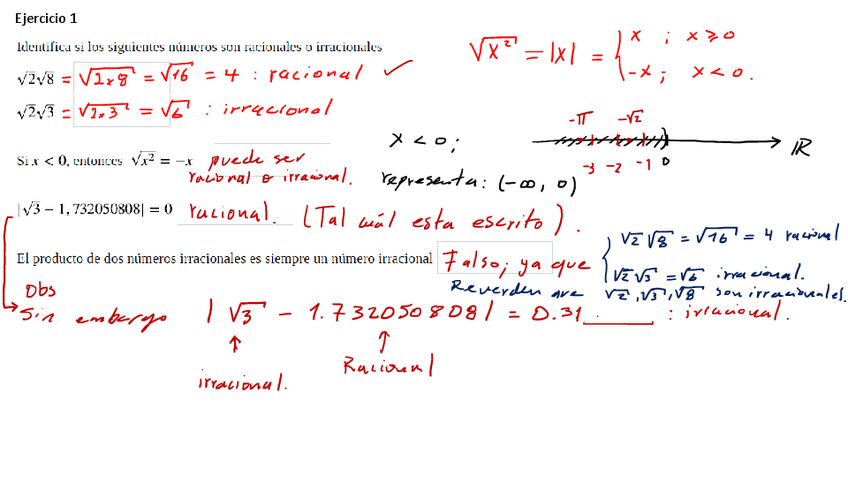 Ejercicio 1
Identifica si los siguientes números son racionales o irracionales
√x² = |x| = { x ; x ≥ 0
-x ; x < 0.
√2√8 = √2×8 = √16 = 4 : racional ✓
√2√3 = √2×3 = √6 : irracional
-π -√2
x < 0;
-3 -2 -1 0
ℝ
Si x < 0, entonces √x² = −x puede ser
racional o irracional.
representa: (-∞, 0)
|√3 − 1,732050808| = 0 racional. (Tal cuál esta escrito).
√2√8 = √16 = 4 racional
El producto de dos números irracionales es siempre un número irracional Falso; ya que
√2√3 = √6 irracional.
Recuerden que √2, √3, √8 son irracionales.
Obs
Sin embargo |√3 - 1.732050808| = 0.31____ : irracional.
↑ ↑
irracional. Racional